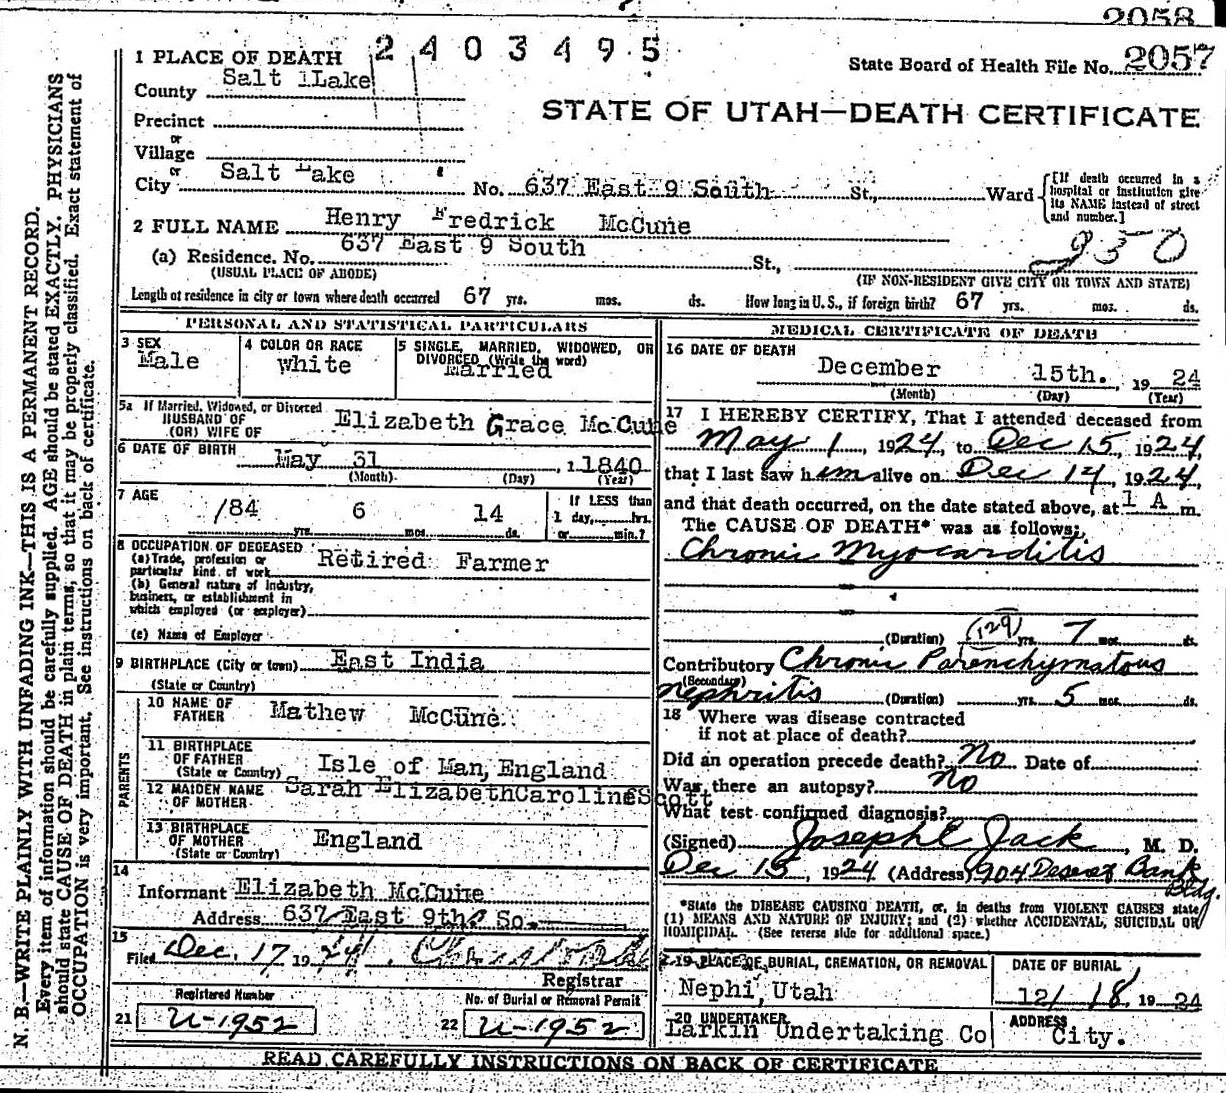 2058
2403495
State Board of Health File No. 2057
1 PLACE OF DEATH
County Salt Lake
STATE OF UTAH—DEATH CERTIFICATE
Precinct
or
Village
or
City Salt Lake No. 637 East 9 South St., Ward
[If death occurred in a hospital or institution give its NAME instead of street and number.]
2 FULL NAME Henry Fredrick McCune
950
(a) Residence. No. 637 East 9 South St.,
(USUAL PLACE OF ABODE) (IF NON-RESIDENT GIVE CITY OR TOWN AND STATE)
Length of residence in city or town where death occurred 67 yrs. mos. ds. How long in U. S., if foreign birth? 67 yrs. mos. ds.
PERSONAL AND STATISTICAL PARTICULARS
3 SEX
Male
4 COLOR OR RACE
white
5 SINGLE, MARRIED, WIDOWED, OR
DIVORCED (Write the word)
Married
5a If Married, Widowed, or Divorced
HUSBAND OF
(OR) WIFE OF Elizabeth Grace McCune
6 DATE OF BIRTH May 31, 1 1840
(Month) (Day) (Year)
7 AGE
/84 yrs. 6 mos. 14 ds.
If LESS than
1 day, hrs.
or min.?
8 OCCUPATION OF DECEASED
(a) Trade, profession or
particular kind of work Retired Farmer
(b) General nature of Industry,
business, or establishment in
which employed (or employer)
(c) Name of Employer
9 BIRTHPLACE (City or town) East India
(State or Country)
PARENTS
10 NAME OF
FATHER Mathew McCune
11 BIRTHPLACE
OF FATHER
(State or Country) Isle of Man, England
12 MAIDEN NAME
OF MOTHER Sarah ElizabethCarolineScott
13 BIRTHPLACE
OF MOTHER
(State or Country) England
14
Informant Elizabeth McCune
Address 637 East 9th So.
15
Filed Dec. 17 1924
Registrar
Registered Number
21 U-1952
No. of Burial or Removal Permit
22 U-1952
MEDICAL CERTIFICATE OF DEATH
16 DATE OF DEATH
December 15th. 19 24
(Month) (Day) (Year)
17 I HEREBY CERTIFY, That I attended deceased from
May 1, 1924, to Dec 15, 1924,
that I last saw him alive on Dec 14, 1924,
and that death occurred, on the date stated above, at 1 A m.
The CAUSE OF DEATH* was as follows;
Chronic Myocarditis
(129)
(Duration) yrs. 7 mos. ds.
Contributory Chronic Parenchymatous
(Secondary)
Nephritis (Duration) yrs. 5 mos. ds.
18 Where was disease contracted
if not at place of death?
Did an operation precede death? No Date of
Was there an autopsy? No
What test confirmed diagnosis?
(Signed) Joseph E Jack, M. D.
Dec 15, 1924 (Address) 904 Deseret Bank
Bldg.
*State the DISEASE CAUSING DEATH, or, in deaths from VIOLENT CAUSES state
(1) MEANS AND NATURE OF INJURY; and (2) whether ACCIDENTAL, SUICIDAL OR
HOMICIDAL. (See reverse side for additional space.)
19 PLACE OF BURIAL, CREMATION, OR REMOVAL
Nephi, Utah
DATE OF BURIAL
12/ 18, 1924
20 UNDERTAKER
Larkin Undertaking Co
ADDRESS
City.
READ CAREFULLY INSTRUCTIONS ON BACK OF CERTIFICATE
N. B.—WRITE PLAINLY WITH UNFADING INK—THIS IS A PERMANENT RECORD.
Every item of information should be carefully supplied. AGE should be stated EXACTLY. PHYSICIANS
should state CAUSE OF DEATH in plain terms, so that it may be properly classified. Exact statement of
OCCUPATION is very important. See instructions on back of certificate.